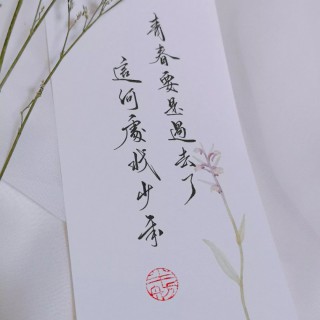 青春要是過去了
這何處找少年